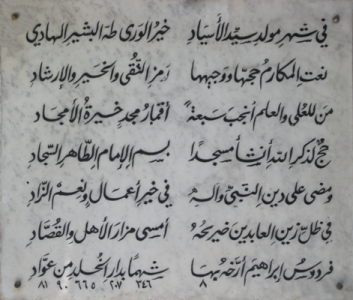 في شهر مولد سيّد الأسياد خير الورى طه البشير الهادي
نعت المكارم حجيها ووجيهها رمز التقى والخير والإرشاد
من للعلى والعلم أنجب سبعة أقمار مجد خيرة الأمجاد
حج لذكر الله أنشأ مسجدا بسم الإمام الطاهر السجاد
ومضى على دين النبي وآله في خير أعمال ونعم الزاد
في ظل زين العابدين ضريحه أمسى مزار الأهل والقصاد
فردوس إبراهيم أرخه بها شهما بدار الخلد من عواد
٨ ٣٤٦ ٢٠٧ ٦٦٥ ٩٠ ٨١